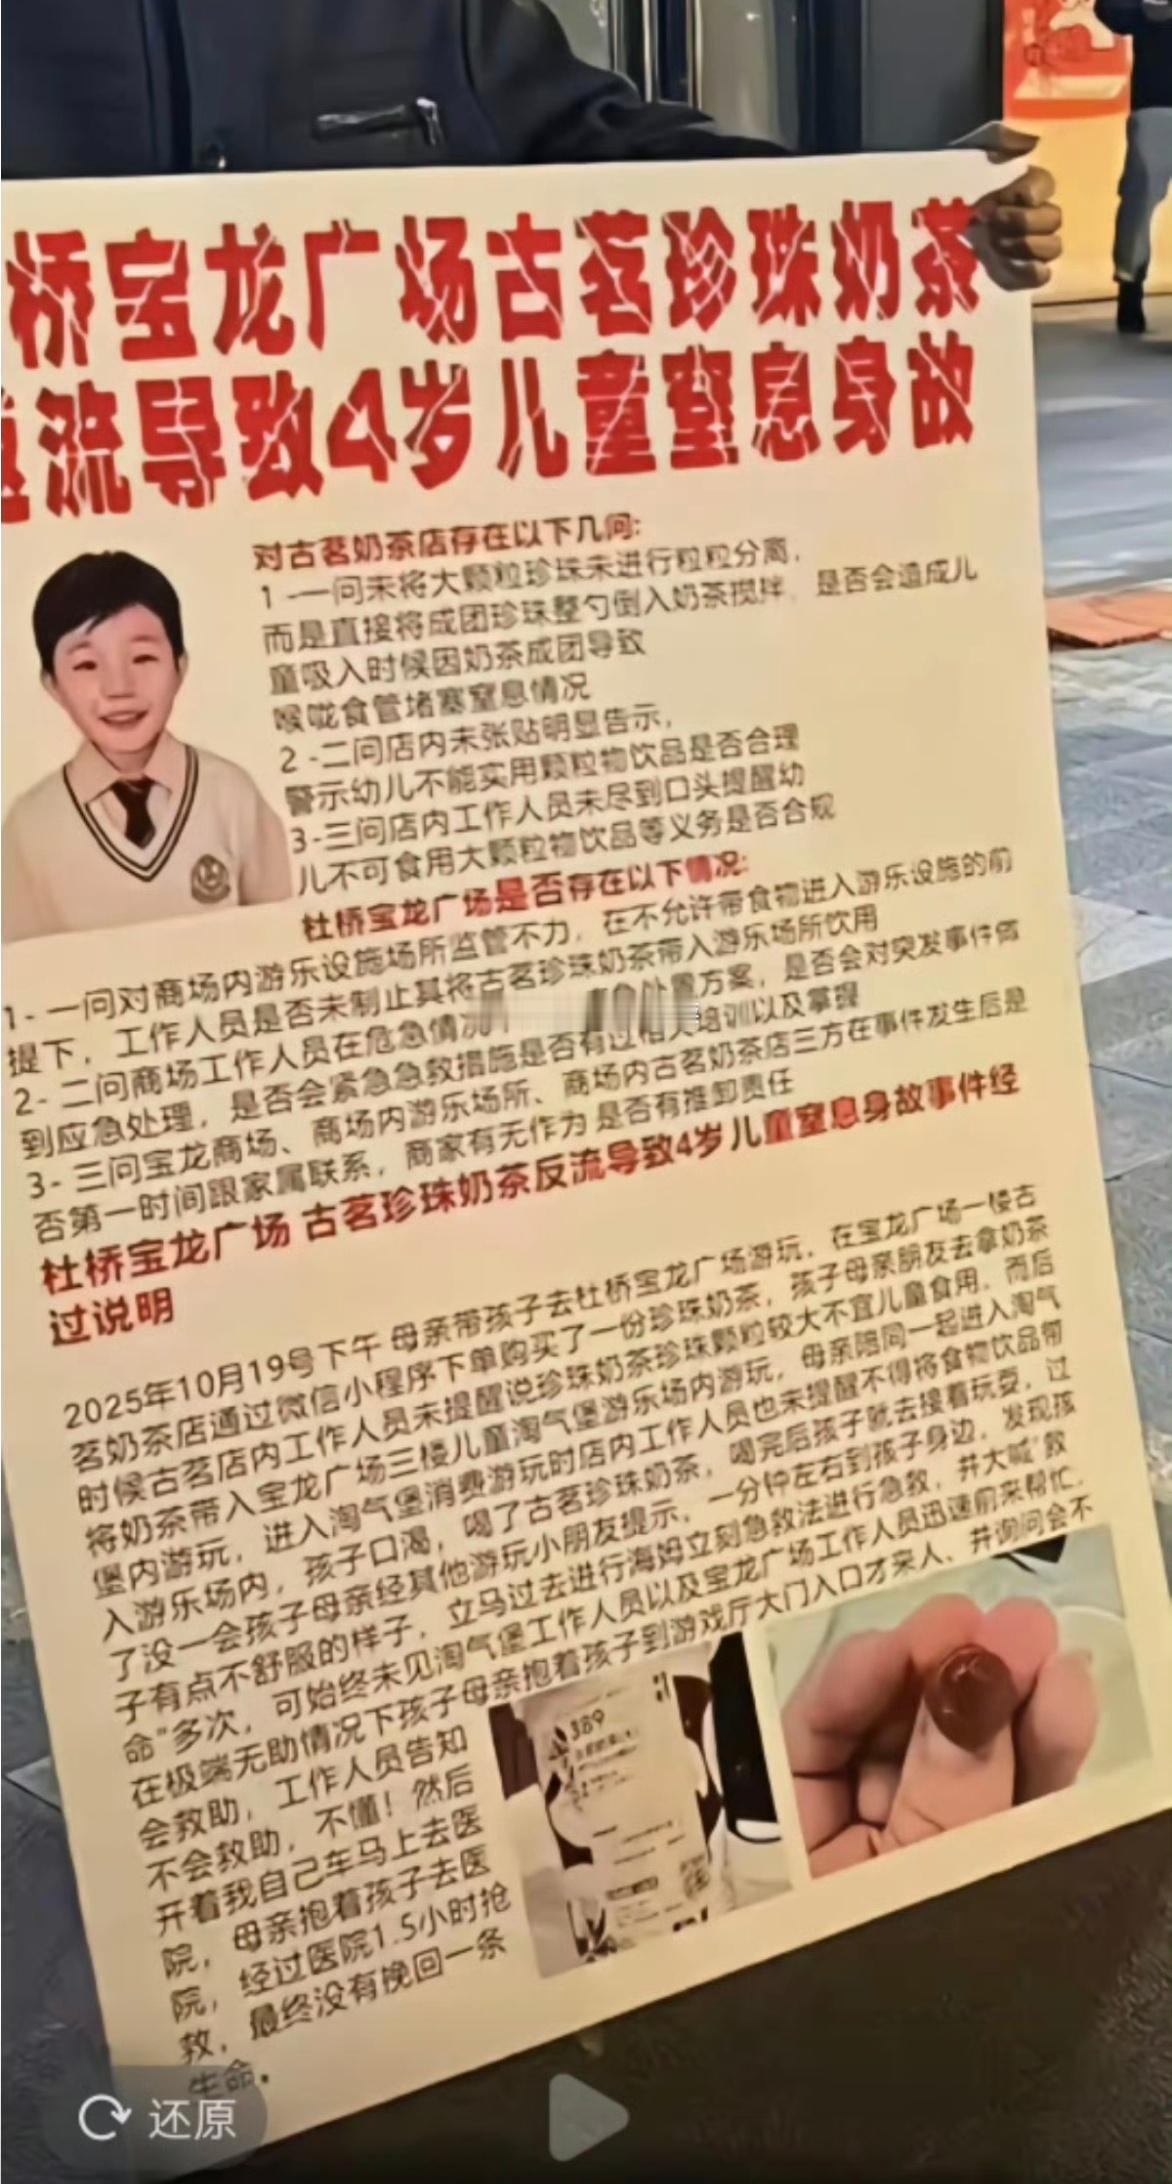 桥宝龙广场古茗珍珠奶茶
流导致4岁儿童窒息身故
对古茗奶茶店存在以下几问:
1 -一问未将大颗粒珍珠未进行粒粒分离,
而是直接将成团珍珠整勺倒入奶茶搅拌 是否会造成儿
童吸入时候因奶茶成团导致
喉咙食管堵塞窒息情况
2 -二问店内未张贴明显告示,
警示幼儿不能实用颗粒物饮品是否合理
3-三问店内工作人员未尽到口头提醒幼
儿不可食用大颗粒物饮品等义务是否合规
杜桥宝龙广场是否存在以下情况:
1- 一问对商场内游乐设施场所监管不力, 在不允许带食物进入游乐设施的前
提下, 工作人员是否未制止其将古茗珍珠奶茶带入游乐场所饮用
2- 二问商场工作人员在危急情况 处置方案, 是否会对突发事件做
到应急处理, 是否会紧急急救措施是否有过相关培训以及掌握
3- 三问宝龙商场、商场内游乐场所、商场内古茗奶茶店三方在事件发生后是
否第一时间跟家属联系, 商家有无作为 是否有推卸责任
杜桥宝龙广场 古茗珍珠奶茶反流导致4岁儿童窒息身故事件经
过说明
2025年10月19号下午 母亲带孩子去杜桥宝龙广场游玩, 在宝龙广场一楼古
茗奶茶店通过微信小程序下单购买了一份珍珠奶茶, 孩子母亲朋友去拿奶茶
时候古茗店内工作人员未提醒说珍珠奶茶珍珠颗粒较大不宜儿童食用. 而后
将奶茶带入宝龙广场三楼儿童淘气堡游乐场内游玩, 母亲陪同一起进入淘气
堡内游玩, 进入淘气堡消费游玩时店内工作人员也未提醒不得将食物饮品带
入游乐场内, 孩子口渴, 喝了古茗珍珠奶茶, 喝完后孩子就去接着玩耍, 过
了没一会孩子母亲经其他游玩小朋友提示, 一分钟左右到孩子身边, 发现孩
子有点不舒服的样子, 立马过去进行海姆立刻急救法进行急救, 并大喊"救
命"多次, 可始终未见淘气堡工作人员以及宝龙广场工作人员迅速前来帮忙.
在极端无助情况下孩子母亲抱着孩子到游戏厅大门入口才来人、并询问会不
会救助, 工作人员告知
不会救助, 不懂! 然后
开着我自己车马上去医
院, 母亲抱着孩子去医
院, 经过医院1.5小时抢
救, 最终没有挽回一条
生命.
389
还原